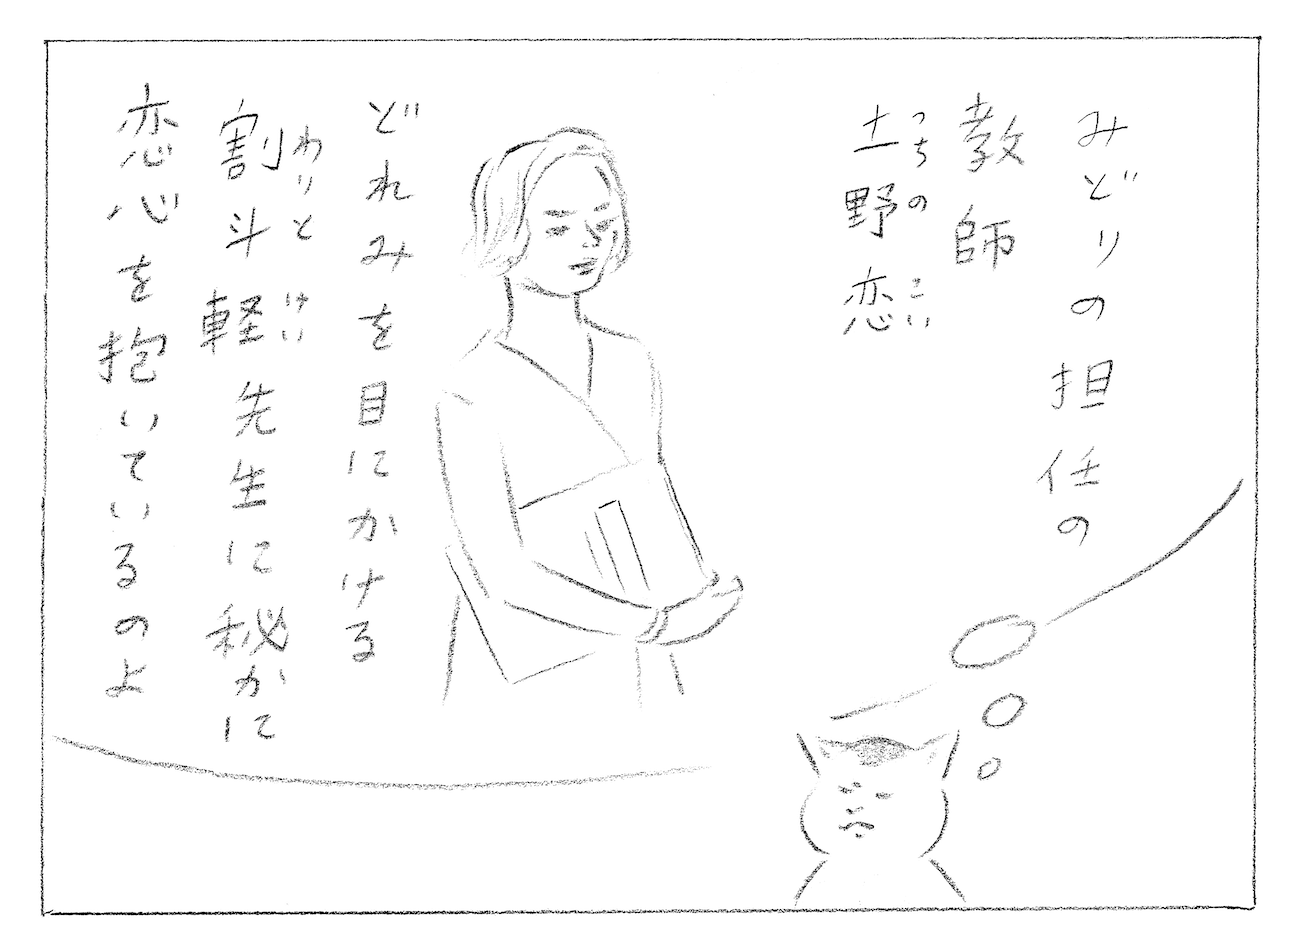 みどりの担任の
教師
土野恋
つちの こい
どれみを目にかける
割斗軽先生に秘かに
わりと けい
恋心を抱いているのよ